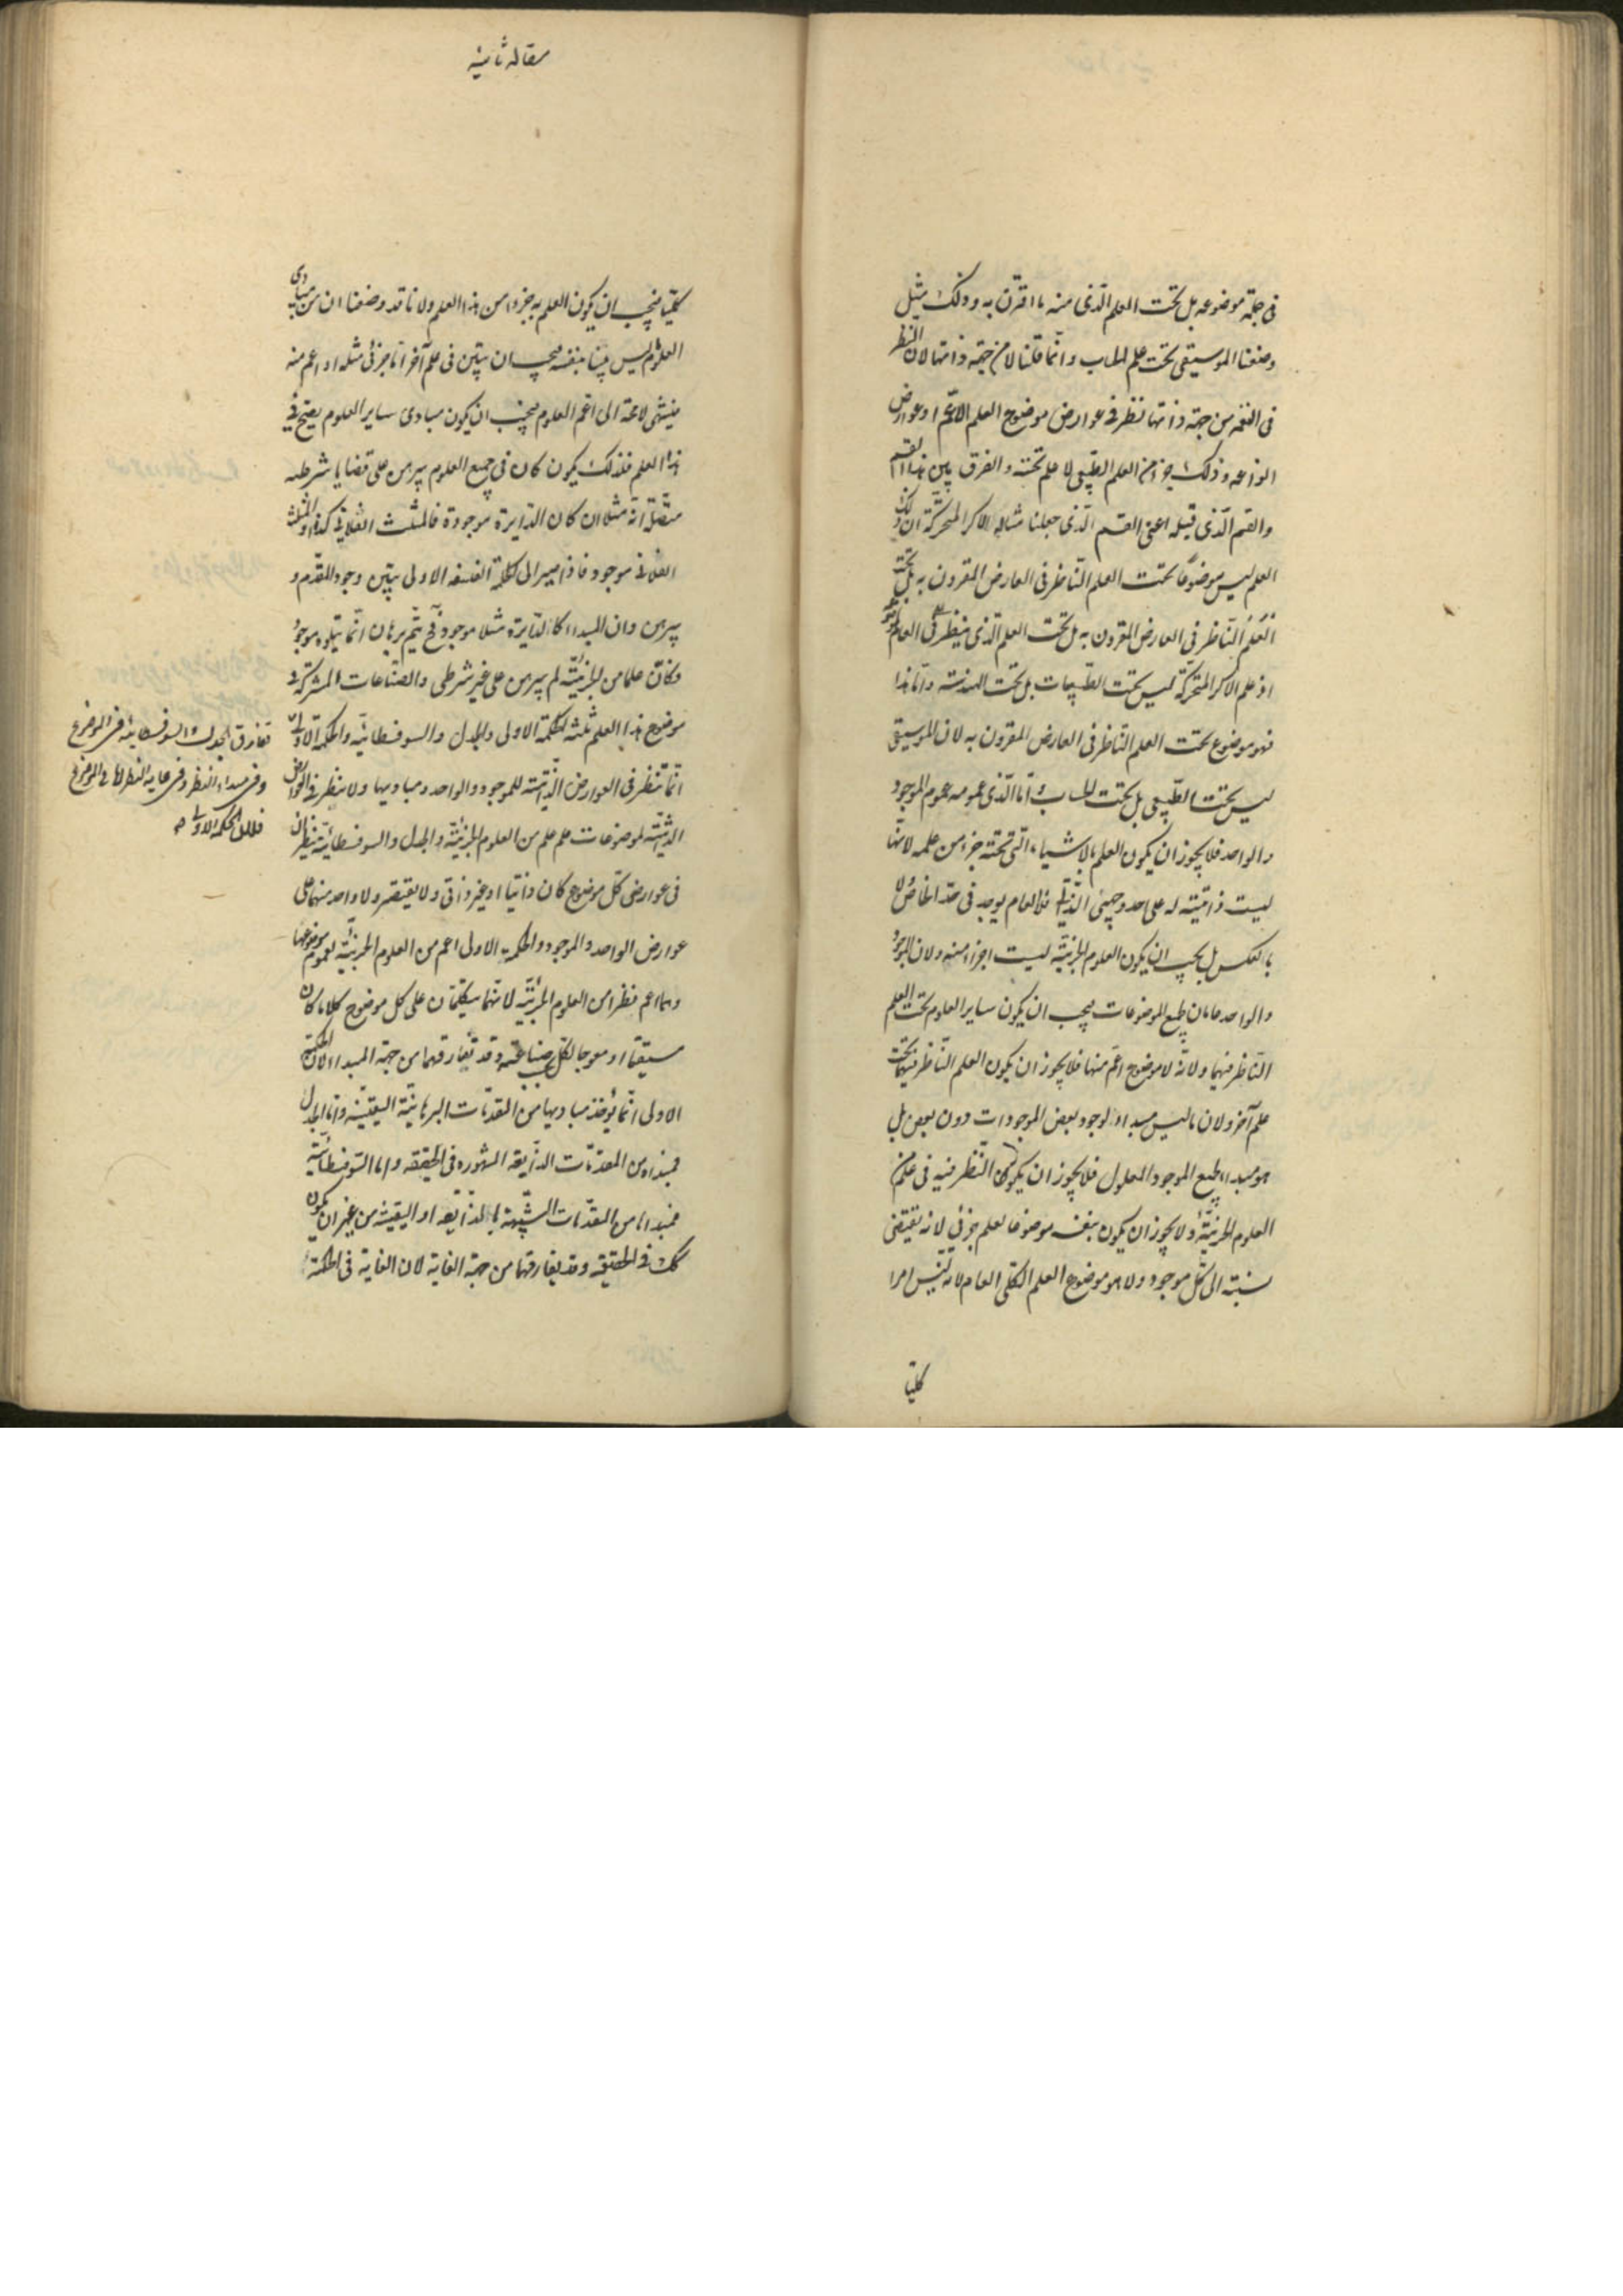 فی جملة موضوعه بل تحت العلم الّذی منه ما اقترن به و ذلک مثل
وضعنا الموسیقی تحت علم الحساب و انّما قلنا لا من جهة ذاتها لان النظر
فی النغمه من جهة ذاتها نظر فی عوارض موضوع العلم الاعمّ او عوارض
انواعه و ذلک جزء من العلم الطّبیعی لا علم تحته و الفرق بین هذا القسم
و القسم الّذی قبله اعنی القسم الّذی جعلنا مثاله الاکر المتحرّکة ان ذلک
العلم لیس موضوعًا تحت العلم النّاظر فی العارض المقرون به بل تحت
العلم النّاظر فی العارض المقرون به بل تحت العلم الّذی ینظر فی العام
اذ علم الاکر المتحرّکة لیس تحت الطّبیعیات بل تحت الهندسة و امّا هذا
فهو موضوع تحت العلم النّاظر فی العارض المقرون به لان الموسیقی
لیس تحت الطّبیعی بل تحت الحساب و امّا الّذی عمومه عموم الموجود
و الواحد فلا یجوز ان یکون العلم بالاشیاء الّتی تحته جزءا من علمه لانّها
لیست ذاتیّته له علی احد وجهی الذّاتی فلا العام یوجد فی حدّ الخاصّ و لا
بالعکس بل یجب ان یکون العلوم الجزئیّة لیست اجزاء منه و لان الموجود
و الواحد عامان لجمیع الموضوعات فیجب ان یکون سایر العلوم تحت العلم
النّاظر فیهما و لانّه لا موضوع اعمّ منها فلا یجوز ان یکون العلم النّاظر فیهما تحت
علم آخر و لان ما لیس مبداء لوجود بعض الموجودات دون بعض بل
هو مبداء لجمیع الموجود المعلول فلا یجوز ان یکون النّظر فیه فی علم من
العلوم الجزئیّة و لا یجوز ان یکون بنفسه موضوعا لعلم جزئی لانه یقتضی
نسبة الی کلّ موجود و لا هو موضوع العلم الکلّی العام لانّه لیس امرا
کلیّا
مقاله ثانیه
کلیّا فیجب ان یکون العلم به جزءا من هذا العلم و لانا قد وضعنا ان من مبادی
العلوم لیس بیّنا بنفسه فیجب ان یتبیّن فی علم آخر امّا جزئی مثله او اعم منه
فینتهی لا محة الی اعم العلوم فیجب ان یکون مبادی سایر العلوم یصحّ فی
هذا العلم فلذلک یکون کان فی جمیع العلوم یبرهن علی قضایا شرطیه
متّصلة انّه مثلا ان کان الدّایرة موجودة فالمثلث الفلانی کذا او المثلث
الفلانی موجود فاذا صیر الی الحکمة الفلسفة الاولی یتبیّن وجود المقدّم و
یبرهن و ان المبداء کالدّایرة مثلا موجود فح یتم برهان انّما یتلوه موجود
و کان علما من الجزئیّة لم یبرهن علی غیر شرطی و الصّناعات المشترکة فی
موضوع هذا العلم ثلثه الحکمة الاولی و الجدل و السوفسطائیّه و الحکمة الاولی
انّما تنظر فی العوارض الذّاتیّه للموجود و الواحد و مبادیها و لا ینظر فی العوارض
الذّاتیّه لموضوعات علم علم من العلوم الجزئیّة و الجدل و السوفسطائیّة ینظران
فی عوارض کلّ موضوع کان ذاتیا او غیر ذاتی و لا یقتصر و لا واحد منهما علی
عوارض الواحد و الموجود و الحکمة الاولی اعم من العلوم الجزئیّة لعموم موضوعها
و هما اعم نظرا من العلوم الجزئیّه لانّهما یتکلّمان علی کل موضوع کلاما کان
مستقیما او معوجا لکلّ بحسب صناعته و قد تفارقهما من جهة المبداء لان الحکمة
الاولی انّما یؤخذ مبادیها من المقدّمات البرهانیّة الیقینیّه و امّا الجدل
فمبداه من المقدّمات الذّایعة المشهورة فی الحقیقة و امّا السّوفسطائیّة
فمبداها من المقدّمات الشّبیهة بالذّایعه او الیقینیّة من غیر ان یکون
کک فی الحقیقة و قد یفارقهما من جهة الغایة لان الغایة فی الحکمة
تفارق الجدل و السوفسطائیة فی الموضوع
و فی مبداء النظر و فی غایة النظر اما فی الموضوع
فلان الحکمة الاولی